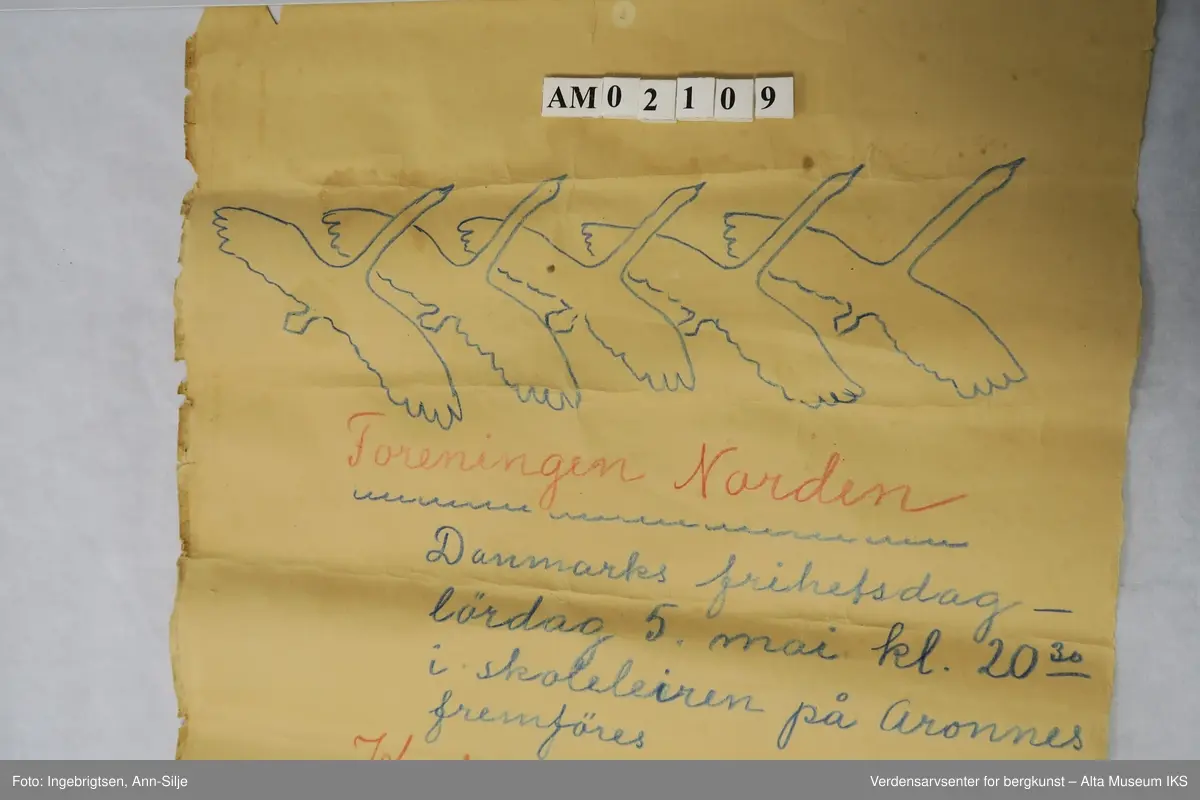 AM02109
Foreningen Norden
Danmarks frihetsdag –
lördag 5. mai kl. 20³⁰
i skoleleiren på Aronnes
fremföres
Foto: Ingebrigtsen, Ann-Silje
Verdensarvsenter for bergkunst – Alta Museum IKS